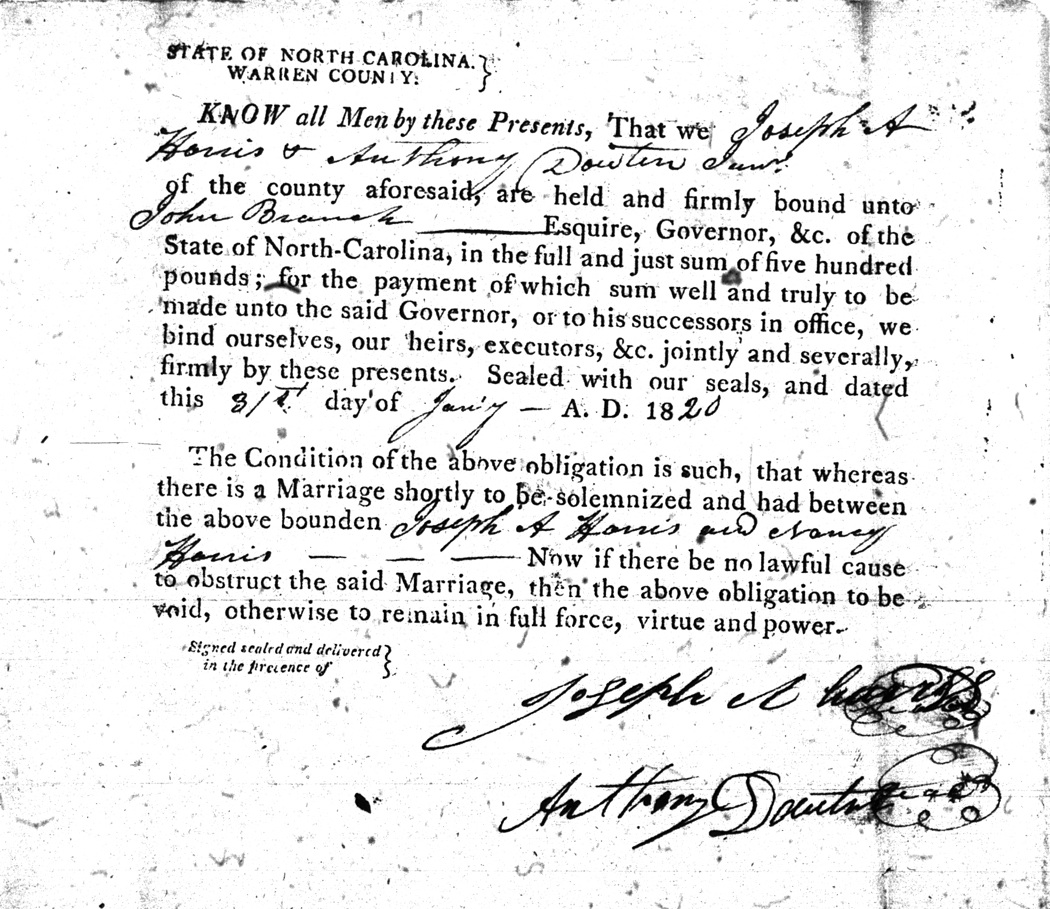 STATE OF NORTH CAROLINA. }
WARREN COUNTY.
KNOW all Men by these Presents, That we Joseph A
Harris & Anthony Dowtin Junr.
of the county aforesaid, are held and firmly bound unto
John Branch Esquire, Governor, &c. of the
State of North-Carolina, in the full and just sum of five hundred
pounds; for the payment of which sum well and truly to be
made unto the said Governor, or to his successors in office, we
bind ourselves, our heirs, executors, &c. jointly and severally,
firmly by these presents. Sealed with our seals, and dated
this 31st day of Jan'y — A. D. 1820
The Condition of the above obligation is such, that whereas
there is a Marriage shortly to be solemnized and had between
the above bounden Joseph A Harris and Nancy
Harris — — — Now if there be no lawful cause
to obstruct the said Marriage, then the above obligation to be
void, otherwise to remain in full force, virtue and power.
Signed sealed and delivered }
in the presence of
Joseph A harris
Anthony Dowtin